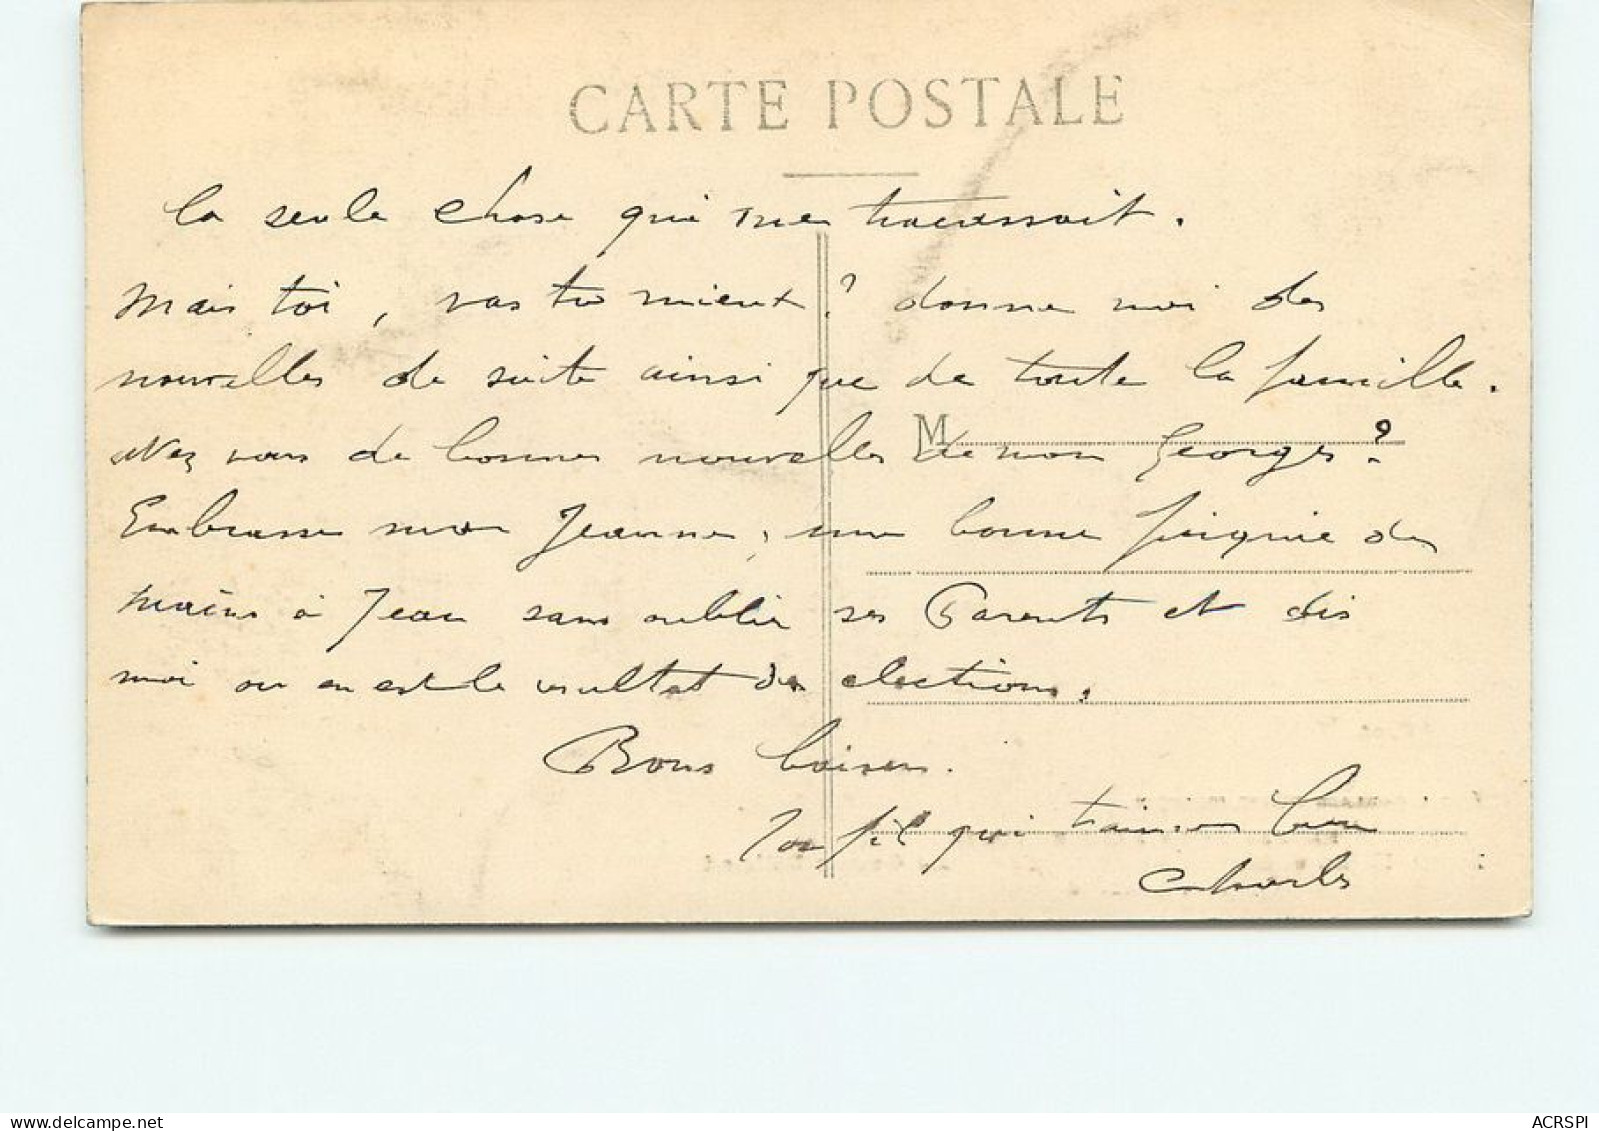 CARTE POSTALE
la seule chose qui me tracassait.
Mais toi, vas tu mieux? donne moi des
nouvelles de suite ainsi que de toute la famille.
Avez vous de bonnes nouvelles de mon Georges?
M
Embrasse mon Jeanne, une bonne poignie de
mains à Jean sans oublier ses Parents et dis
moi ou en est le resultat des elections.
Bons baisers.
Ton fil qui t'aime bien
Charles
ACRSPI